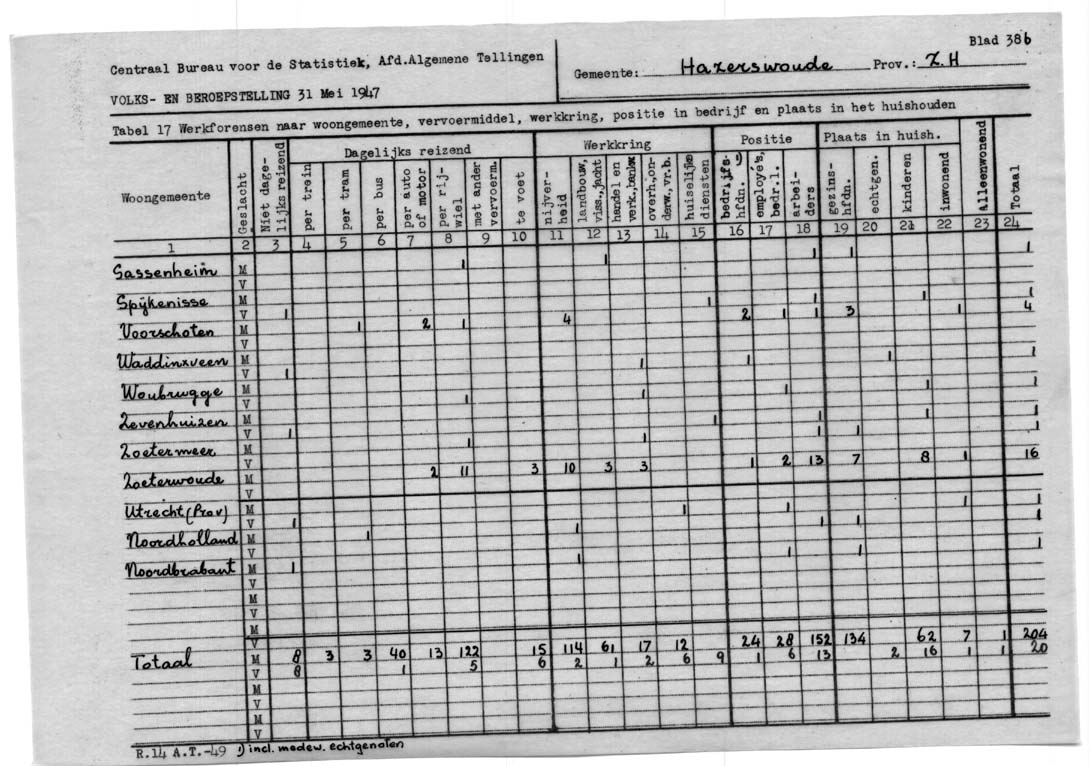 Blad 38b
Centraal Bureau voor de Statistiek, Afd.Algemene Tellingen
Gemeente: Hazerswoude Prov.: Z.H
VOLKS- EN BEROEPSTELLING 31 Mei 1947
Tabel 17 Werkforensen naar woongemeente, vervoermiddel, werkkring, positie in bedrijf en plaats in het huishouden
Woongemeente
Geslacht
Niet dage-
lijks reizend
Dagelijks reizend
per trein
per tram
per bus
per auto
of motor
per rij-
wiel
met ander
vervoerm.
te voet
Werkkring
nijver-
heid
landbouw,
viss.,jacht
handel en
verk.,bankw.
overh.,on-
derw.,vr.b.
huiselijke
diensten
Positie
bedrijfs-
hfdn. 1)
employé's,
bedr.l.
arbei-
ders
Plaats in huish.
gezins-
hfdn.
echtgen.
kinderen
inwonend
Alleenwonend
Totaal
1 2 3 4 5 6 7 8 9 10 11 12 13 14 15 16 17 18 19 20 21 22 23 24
Sassenheim M 1 1 1 1 1
V
Spijkenisse M
V 1 1 1 1 1
Voorschoten M 1 2 1 4 2 1 1 3 1 4
V
Waddinxveen M
V 1 1 1 1 1
Woubrugge M
V 1 1 1 1 1
Zevenhuizen M
V 1 1 1 1 1
Zoetermeer M 1 1 1 1 1
V
Zoeterwoude M 2 11 3 10 3 3 1 2 13 7 8 1 16
V
Utrecht (Prov) M
V 1 1 1 1 1
Noordholland M 1 1 1 1 1
V
Noordbrabant M 1 1 1 1 1
V
M
V
M
V
Totaal M 8 3 3 40 13 122 15 114 61 17 12 24 28 152 134 62 7 1 204
V 8 1 5 6 2 1 2 6 9 1 6 13 2 16 1 1 20
M
V
M
V
R.14 A.T.-49 1) incl. medew. echtgenoten